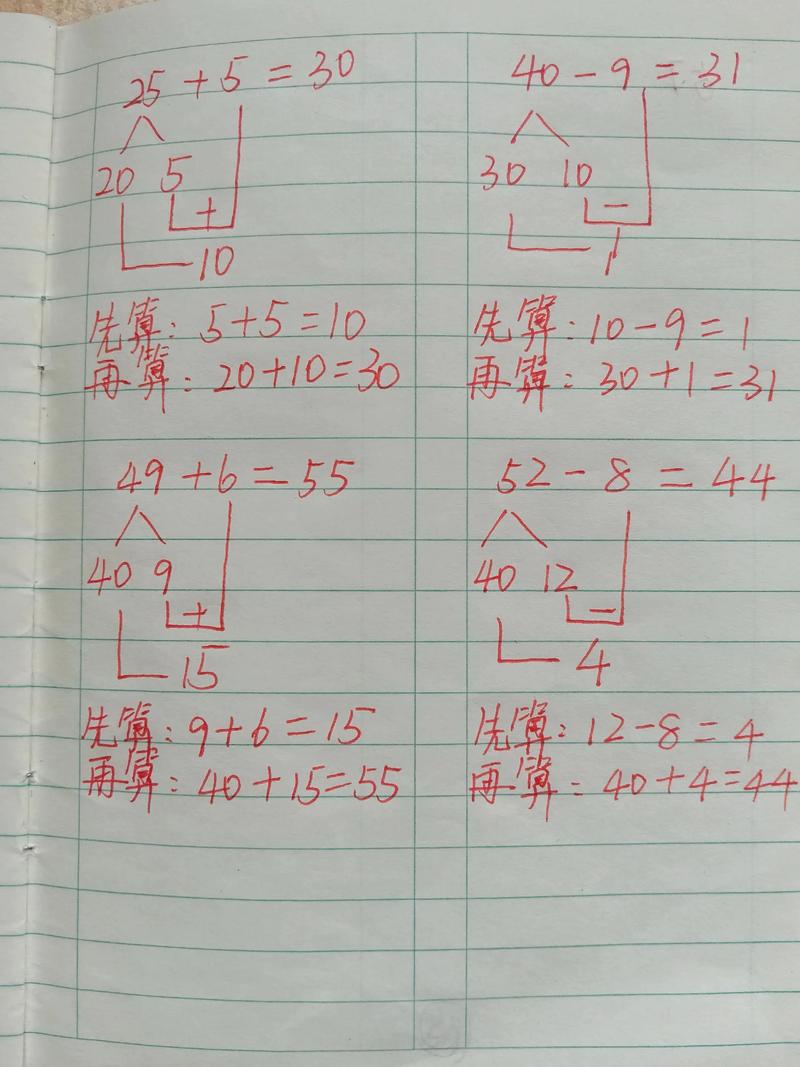 25 + 5 = 30
20 5
+
10
先算: 5+5=10
再算: 20+10=30
40 - 9 = 31
30 10
-
1
先算: 10-9=1
再算: 30+1=31
49 + 6 = 55
40 9
+
15
先算: 9+6=15
再算: 40+15=55
52 - 8 = 44
40 12
-
4
先算: 12-8=4
再算: 40+4=44